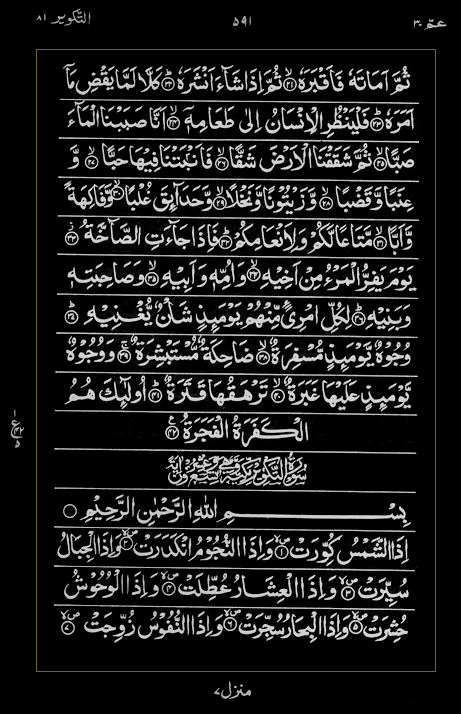 عمّ ٣٠
٥٩١
التّكویر ٨١
ثُمَّ اَمَاتَهٗ فَاَقْبَرَهٗ ۙ﴿٢١﴾ ثُمَّ اِذَا شَآءَ اَنْشَرَهٗ ؕ﴿٢٢﴾ كَلَّا لَمَّا یَقْضِ مَاۤ
اَمَرَهٗ ؕ﴿٢٣﴾ فَلْیَنْظُرِ الْاِنْسَانُ اِلٰی طَعَامِهٖۤ ۙ﴿٢٤﴾ اَنَّا صَبَبْنَا الْمَآءَ
صَبًّا ۙ﴿٢٥﴾ ثُمَّ شَقَقْنَا الْاَرْضَ شَقًّا ۙ﴿٢٦﴾ فَاَنْۢبَتْنَا فِیْهَا حَبًّا ۙ﴿٢٧﴾ وَّ
عِنَبًا وَّقَضْبًا ۙ﴿٢٨﴾ وَّزَیْتُوْنًا وَّنَخْلًا ۙ﴿٢٩﴾ وَّحَدَآئِقَ غُلْبًا ۙ﴿٣٠﴾ وَّفَاكِهَةً
وَّاَبًّا ۙ﴿٣١﴾ مَّتَاعًا لَّكُمْ وَلِاَنْعَامِكُمْ ؕ﴿٣٢﴾ فَاِذَا جَآءَتِ الصَّآخَّةُ ۫﴿٣٣﴾
یَوْمَ یَفِرُّ الْمَرْءُ مِنْ اَخِیْهِ ۙ﴿٣٤﴾ وَاُمِّهٖ وَاَبِیْهِ ۙ﴿٣٥﴾ وَصَاحِبَتِهٖ
وَبَنِیْهِ ؕ﴿٣٦﴾ لِكُلِّ امْرِئٍ مِّنْهُمْ یَوْمَئِذٍ شَاْنٌ یُّغْنِیْهِ ؕ﴿٣٧﴾
وُجُوْهٌ یَّوْمَئِذٍ مُّسْفِرَةٌ ۙ﴿٣٨﴾ ضَاحِكَةٌ مُّسْتَبْشِرَةٌ ۚ﴿٣٩﴾ وَوُجُوْهٌ
یَّوْمَئِذٍ عَلَیْهَا غَبَرَةٌ ۙ﴿٤٠﴾ تَرْهَقُهَا قَتَرَةٌ ؕ﴿٤١﴾ اُولٰٓئِكَ هُمُ
الْكَفَرَةُ الْفَجَرَةُ ﴿٤٢﴾
سُوْرَةُ التَّكْوِیْرِ مَكِّیَّةٌ وَّهِیَ تِسْعٌ وَّعِشْرُوْنَ اٰیَةً
بِسْمِ اللّٰهِ الرَّحْمٰنِ الرَّحِیْمِ
اِذَا الشَّمْسُ كُوِّرَتْ ﴿١﴾ وَاِذَا النُّجُوْمُ انْكَدَرَتْ ﴿٢﴾ وَاِذَا الْجِبَالُ
سُیِّرَتْ ﴿٣﴾ وَاِذَا الْعِشَارُ عُطِّلَتْ ﴿٤﴾ وَاِذَا الْوُحُوْشُ
حُشِرَتْ ﴿٥﴾ وَاِذَا الْبِحَارُ سُجِّرَتْ ﴿٦﴾ وَاِذَا النُّفُوْسُ زُوِّجَتْ ﴿٧﴾
منزل٧